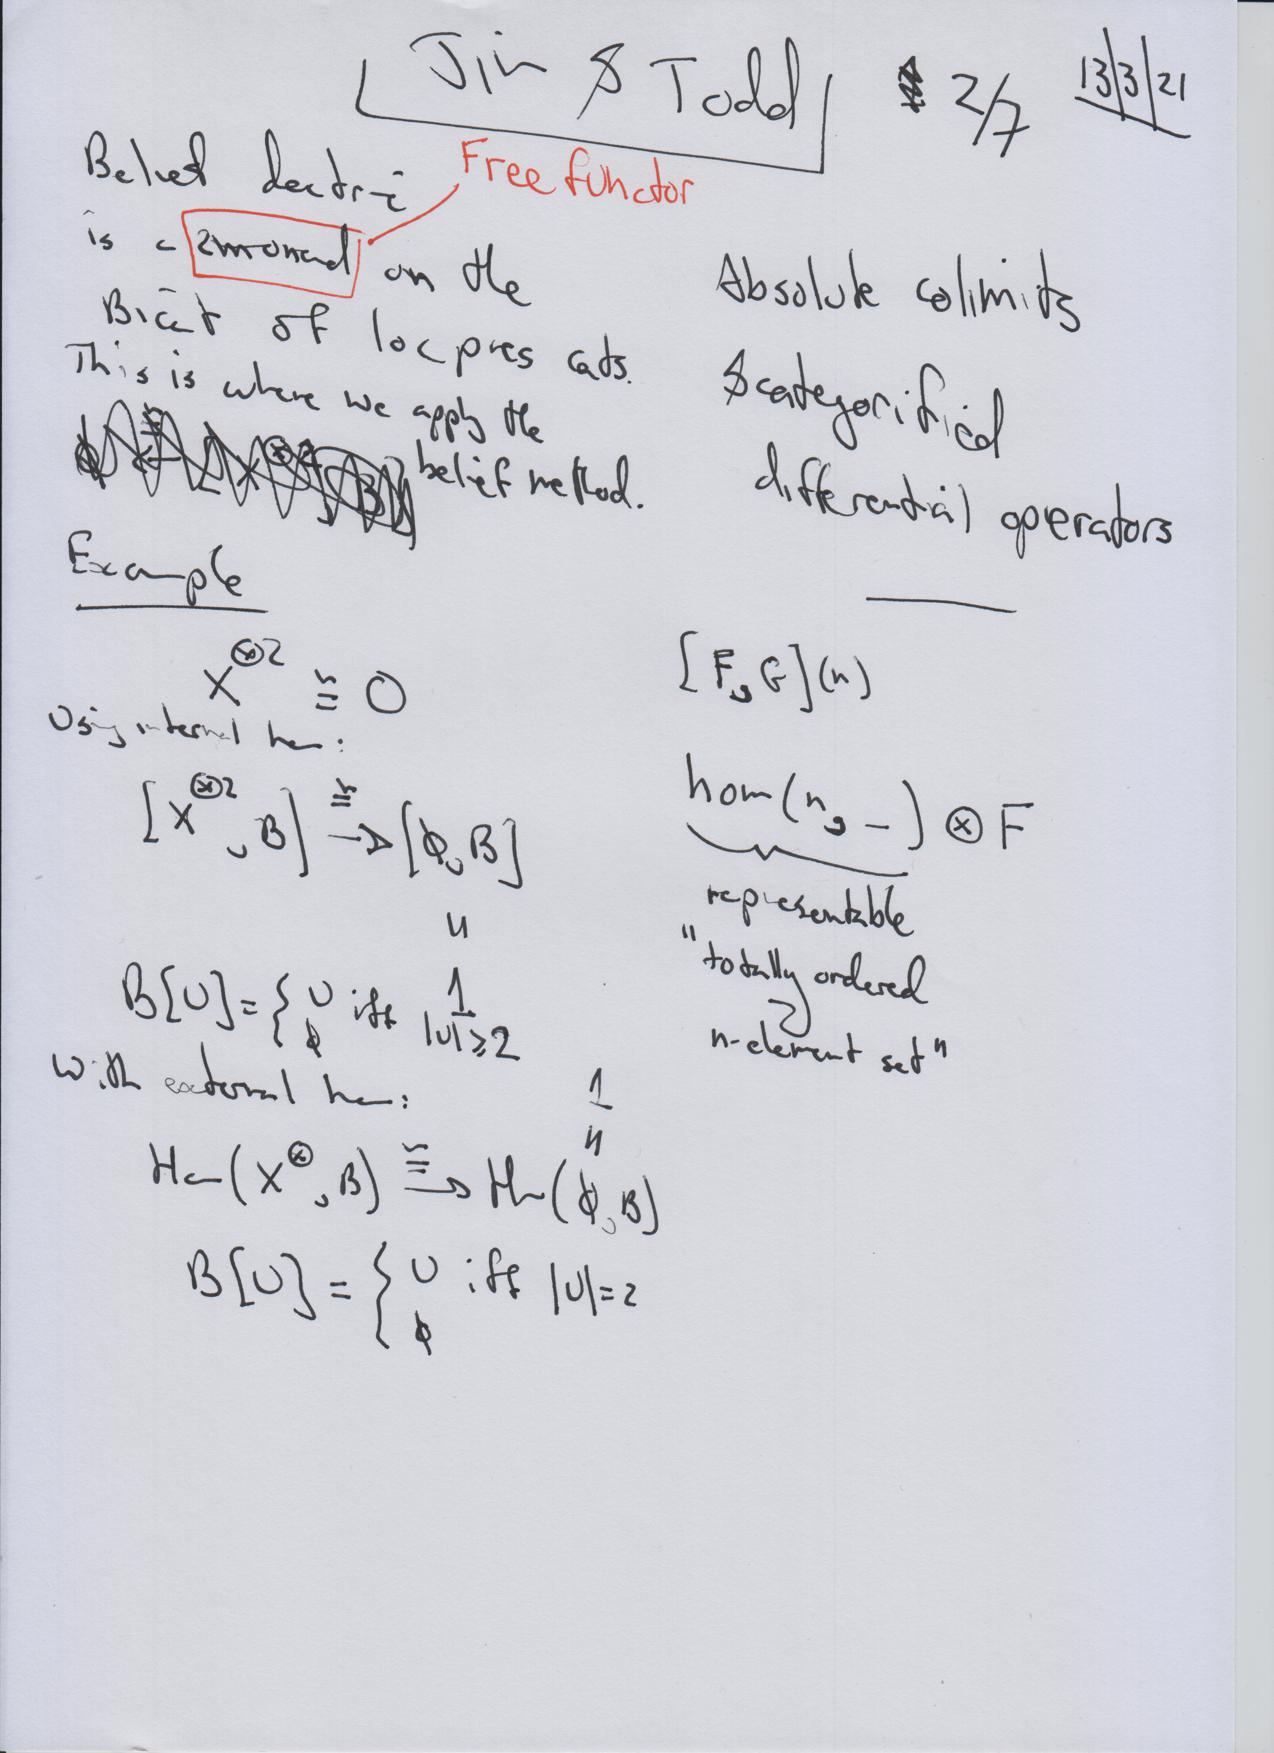 Jin & Todd 2/7 13/3/21
Free functor
Belief doctrine
is a 2monad on the
Bicat of loc pres cats.
This is where we apply the
belief method.
Example
X^{⊗2} ≅ 0
Using internal hom:
[X^{⊗2}, B] ≅→ [ϕ, B]
1
B[U] = { U iff |U|≥2
ϕ
With external hom:
1
Hom(X^{⊗}, B) ≅→ Hom(ϕ, B)
B[U] = { U iff |U|=2
ϕ
Absolute colimits
& categorified
differential operators
[F, G](n)
hom(n, –) ⊗ F
representable
"totally ordered
n-element set"